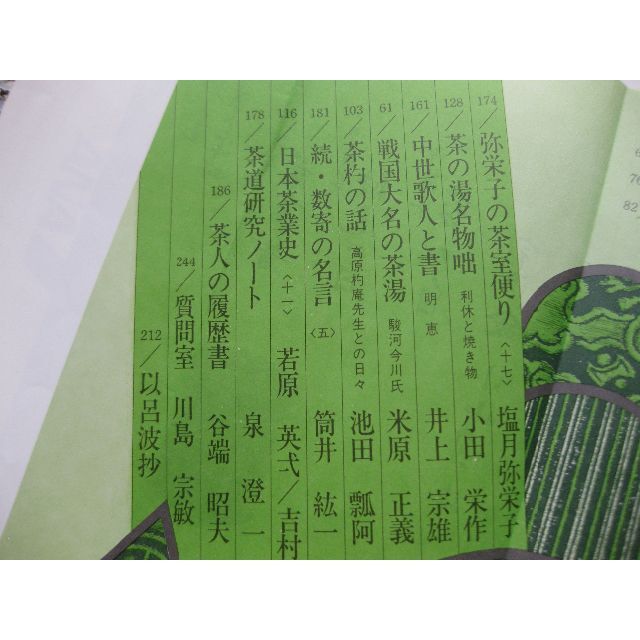 174/弥栄子の茶室便り〈十七〉塩月弥栄子
128/茶の湯名物咄 利休と焼き物 小田 栄作
161/中世歌人と書 明恵 井上 宗雄
61/戦国大名の茶湯 駿河今川氏 米原 正義
103/茶杓の話 高原杓庵先生との日々 池田 瓢阿
181/続・数寄の名言〈五〉筒井 紘一
116/日本茶業史〈十一〉若原 英弌/吉村
178/茶道研究ノート 泉 澄一
186/茶人の履歴書 谷端 昭夫
244/質問室 川島 宗敏
212/以呂波抄
76
82